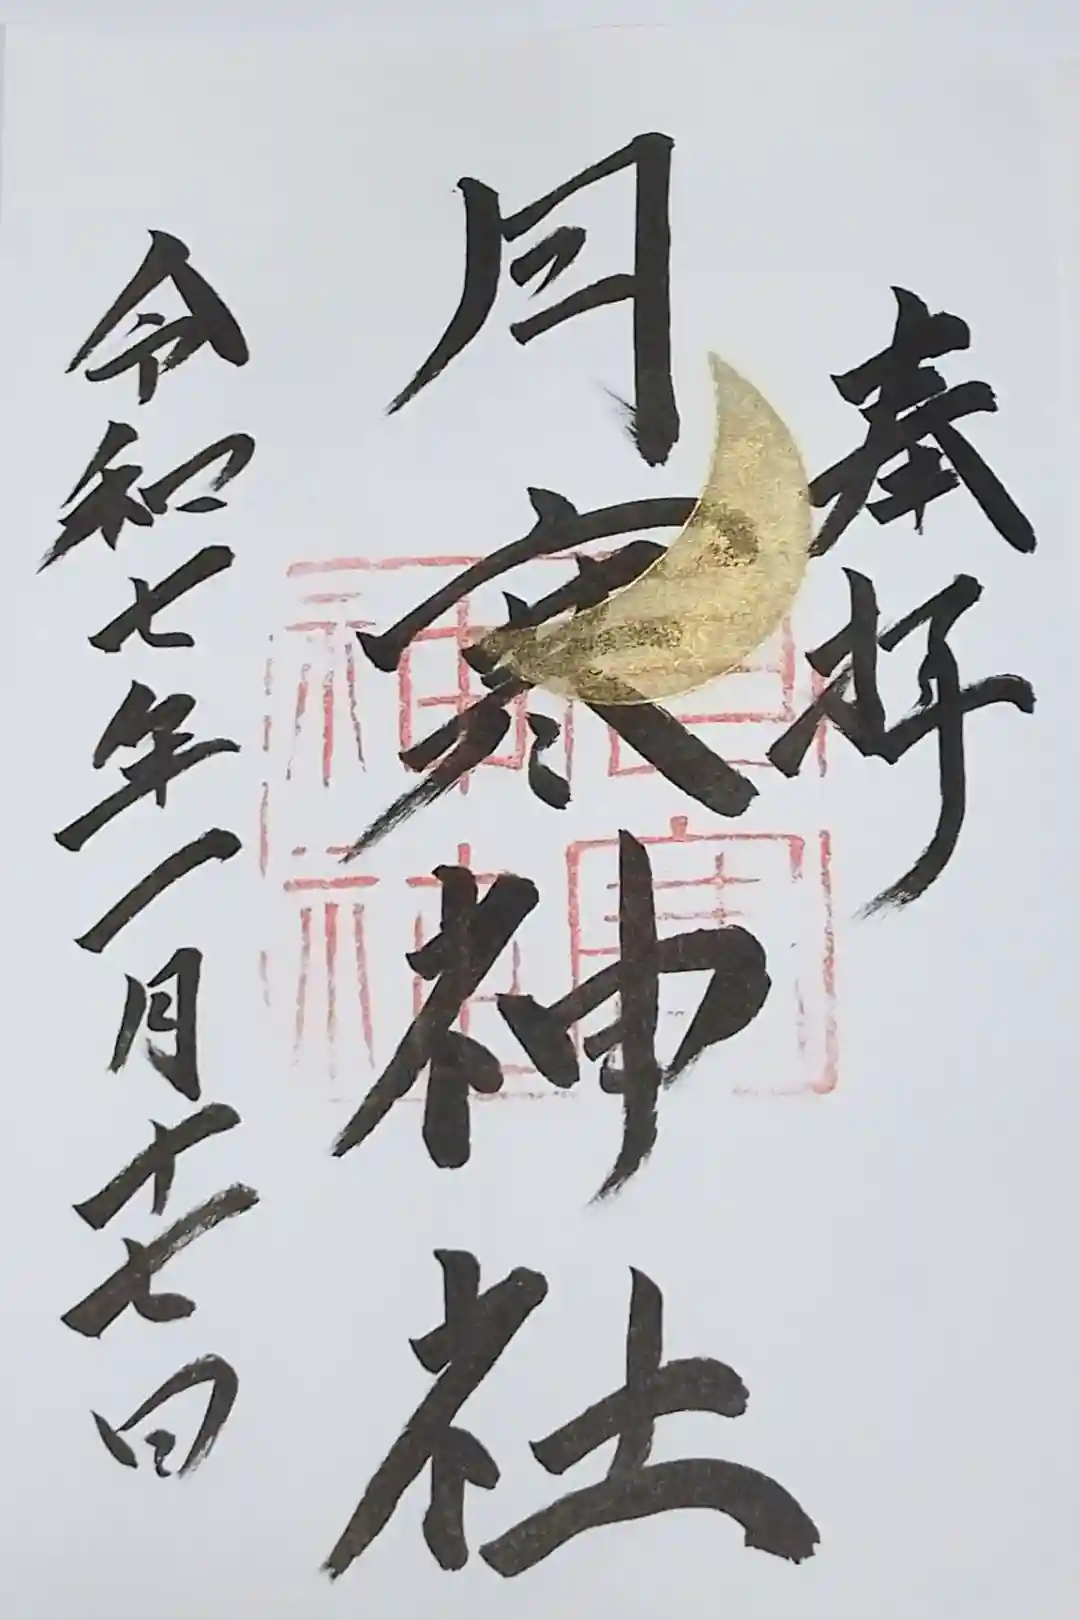 奉拝
月寒神社
令和七年一月十七日
月寒神社